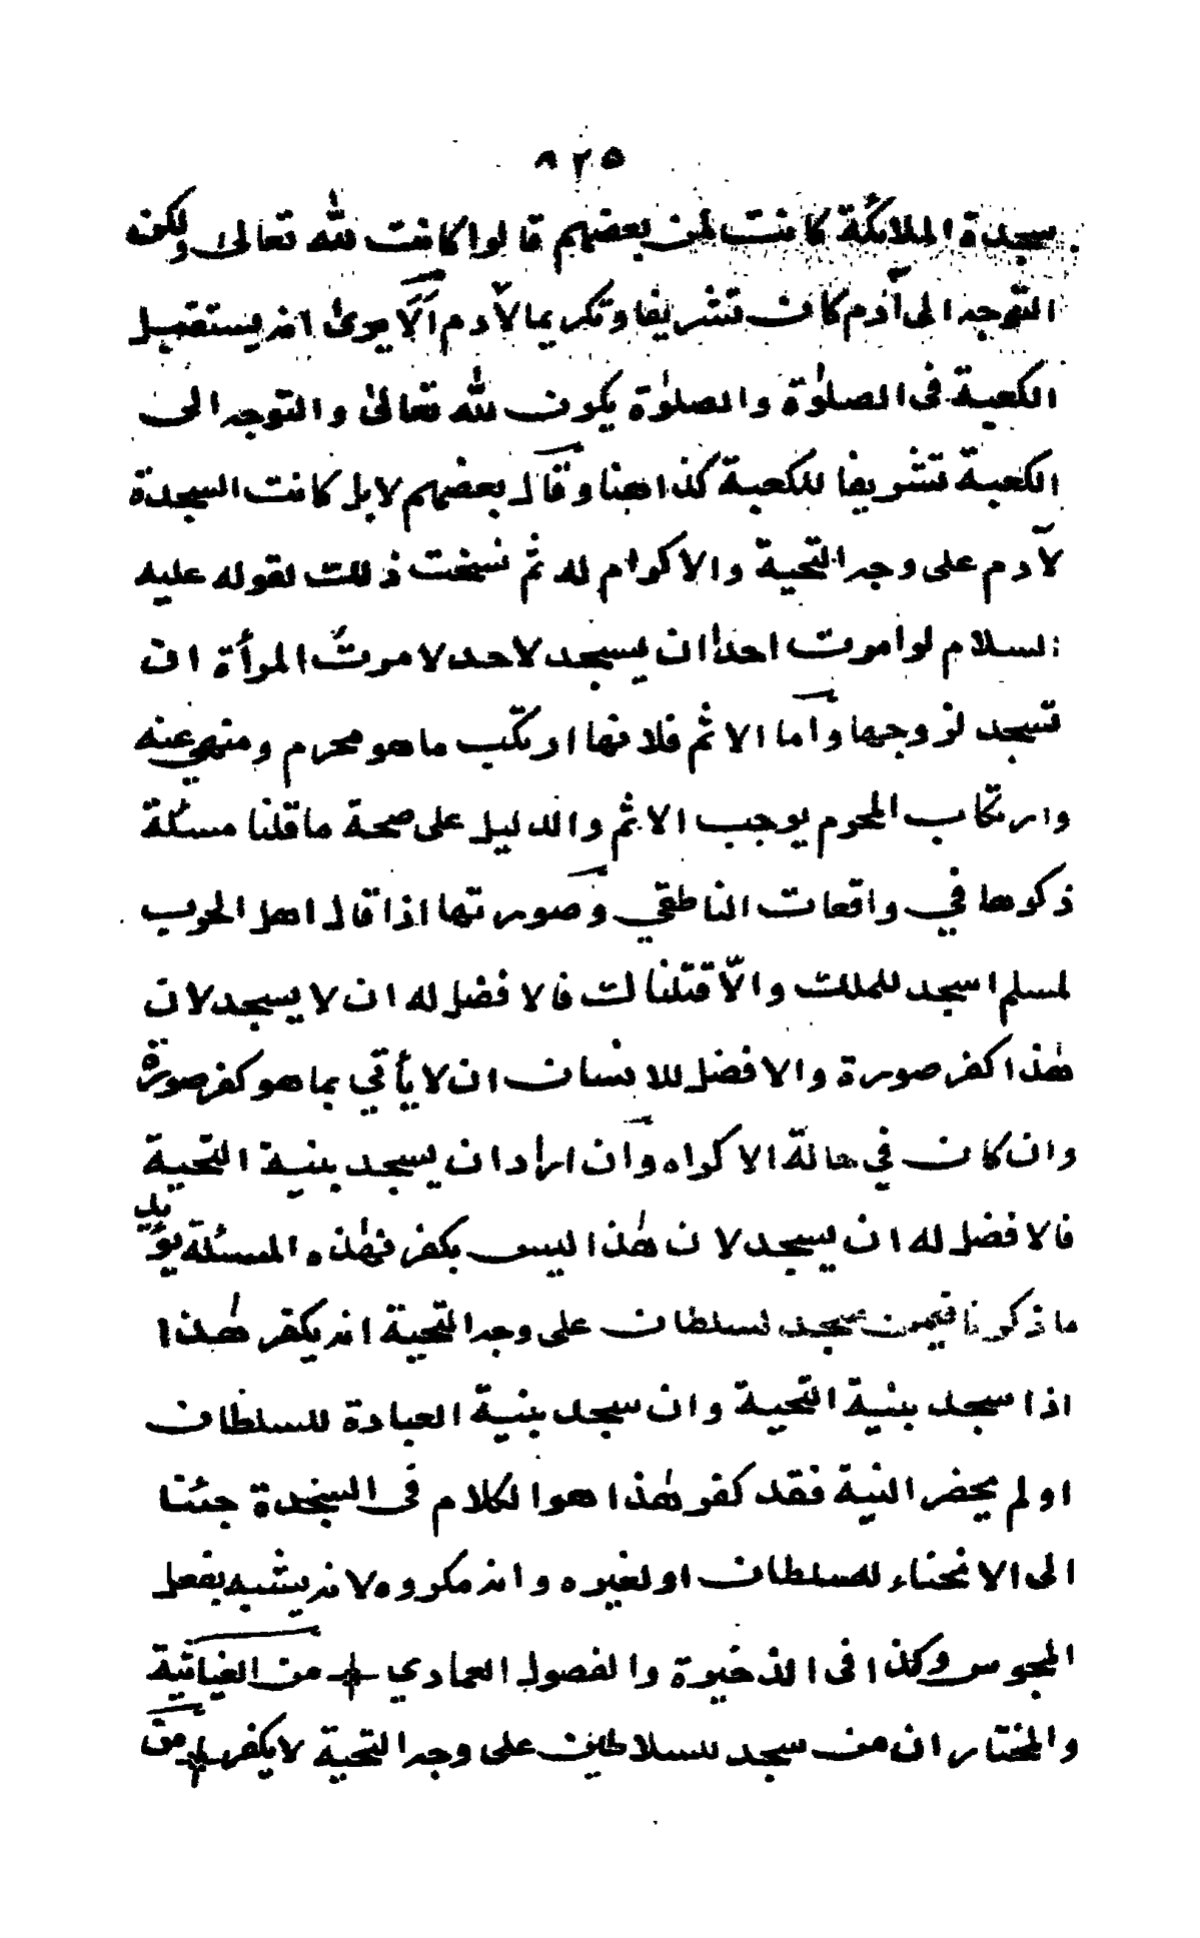 ٨٢٥
سجدة الملائكة كانت لمن بعضهم قالوا كانت لله تعالى ولكن
التوجه الى آدم كان تشريفا وتكريما لآدم ألا يرى انه يستقبل
الكعبة فى الصلوٰة والصلوٰة يكون لله تعالىٰ والتوجه الى
الكعبة تشريفا للكعبة كذا هنا وقال بعضهم لا بل كانت السجدة
لآدم على وجه التحية والاكرام له ثم نسخت ذلك لقوله عليه
السلام لو امرت احدا ان يسجد لاحد لامرت المرأة ان
تسجد لزوجها وأما الاثم فلانها ارتكب ما هو محرم ومنهي عنه
وارتكاب المحرم يوجب الاثم والدليل على صحة ما قلنا مسئلة
ذكرها في واقعات الناطقي وصورتها اذا قال اهل الحرب
لمسلم اسجد للملك والّا قتلناك فالافضل له ان لا يسجد لان
هٰذا كفر صورة والافضل للانسان ان لا يأتي بما هو كفر صورة
وان كان في حالة الاكراه وان اراد ان يسجد بنية التحية
فالافضل له ان يسجد لان هٰذا ليس بكفر فهٰذه المسئلة يؤيد
ما ذكرنا فيمن سجد لسلطان على وجه التحية انه يكفر هٰذا
اذا سجد بنية التحية وان سجد بنية العبادة للسلطان
او لم يحضر النية فقد كفر هٰذا هو الكلام فى السجدة جئنا
الى الانحناء للسلطان او لغيره وانه مكروه لانه يشبه بفعل
المجوس وكذا فى الذخيرة والفصول العمادي + من الغياثية
والمختار ان من سجد للسلاطين على وجه التحية لا يكفر من